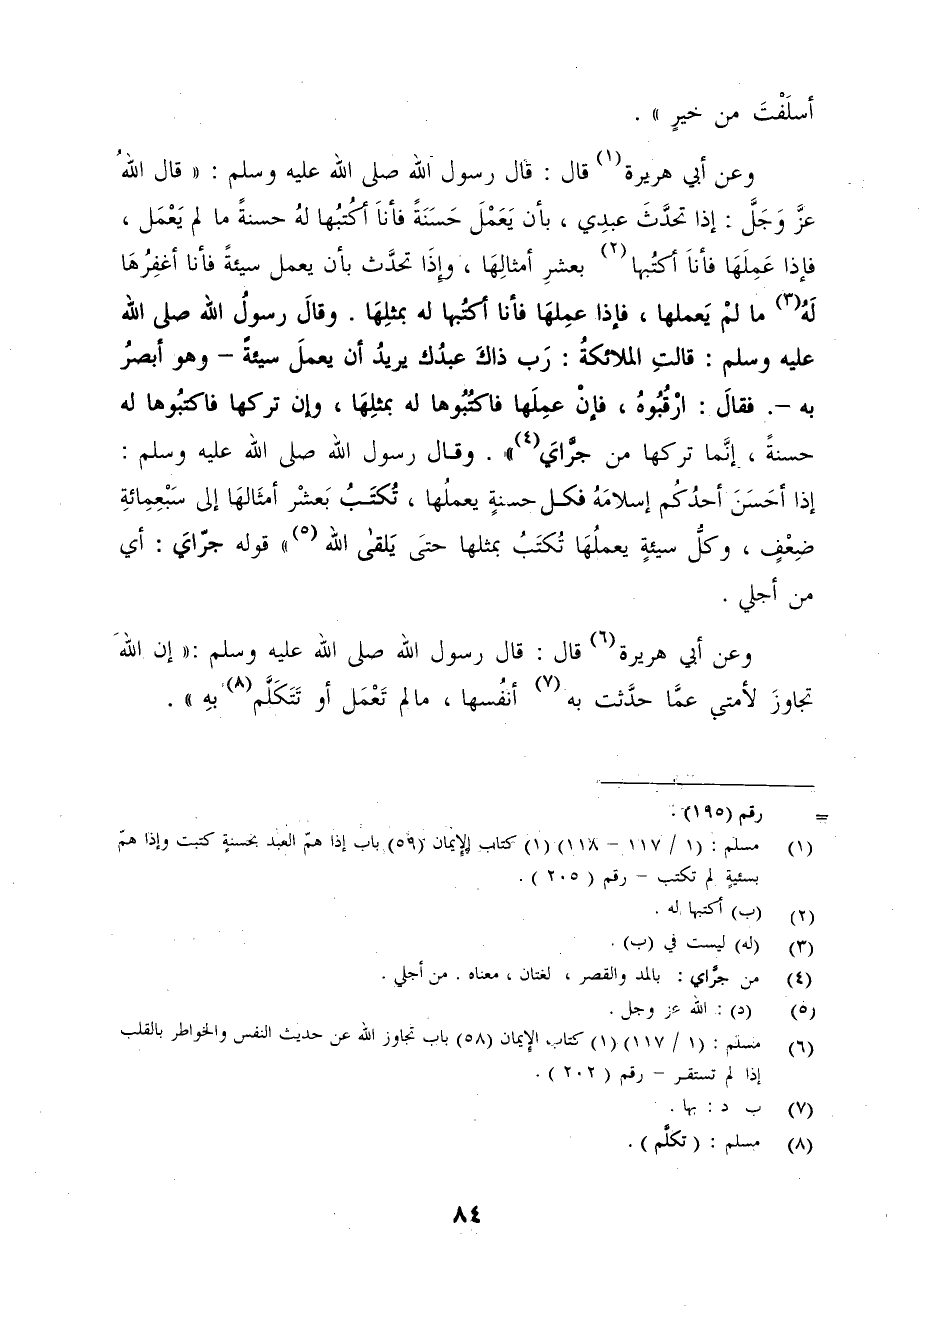 أسلَفْتَ من خيرٍ » .
وعن أبي هريرة(١) قال : قال رسول الله صلى الله عليه وسلم : « قال اللهُ
عزَّ وَجَلَّ : إذا تحدَّثَ عبدِي ، بأن يَعَمْلَ حَسَنَةً فأنَا أكتُبُها لهُ حسنةً ما لم يَعْمَل ،
فإذا عَمِلَهَا فأنَا أكتُبها(٢) بعشرِ أمثالِهَا ، وإذَا تحدَّث بأن يعمل سيئةً فأنا أغفِرُهَا
لَهُ(٣) ما لمْ يَعملها ، فإذا عمِلهَا فأنا أكتُبها له بمثلِهَا . وقالَ رسولُ الله صلى الله
عليه وسلم : قالتِ الملائكةُ : رَب ذاكَ عبدُك يريدُ أن يعملَ سيئةً – وهو أبصرُ
به –. فقالَ : ارْقُبُوهُ ، فإنْ عمِلَها فاكتُبُوها له بمثلِهَا ، وإن تركها فاكتبُوها له
حسنةً ، إنَّما تركها من جرَّايَ(٤)» . وقال رسول الله صلى الله عليه وسلم :
إذا أحَسَنَ أحدُكُم إسلامَهُ فكل حسنةٍ يعملُها ، تُكتَبُ بَعشْر أمثَالهَا إلى سَبْعِمائةِ
ضِعْفٍ ، وكلُّ سيئةٍ يعملُهَا تُكتَبُ بمثلها حتىَ يَلقىٰ الله (٥)» قوله جرّايَ : أي
من أجلي .
وعن أبي هريرة(٦) قال : قال رسول الله صلى الله عليه وسلم :« إن اللهَ
تجاوزَ لأمتي عمَّا حدَّثت به(٧) أنفُسها ، مالم تَعْمَل أو تَتَكَلَّم(٨) بهِ » .
= رقم (١٩٥) .
(١) مسلم : (١ / ١١٧ – ١١٨) (١) كتاب الإيمان (٥٩) باب إذا همّ العبد بحسنةٍ كتبت وإذا همّ
بسئيةٍ لم تكتب – رقم ( ٢٠٥ ) .
(٢) (ب) أكتبها له .
(٣) (له) ليست في (ب) .
(٤) من جرَّاي : بالمد والقصر ، لغتان ، معناه . من أجلي .
(٥) (د) : الله عز وجل .
(٦) مسلم : (١ / ١١٧) (١) كتاب الإيمان (٥٨) باب تجاوز الله عن حديث النفس والخواطر بالقلب
إذا لم تستقر – رقم ( ٢٠٢ ) .
(٧) ب د : بها .
(٨) مسلم : ( تكلَّم ) .
٨٤